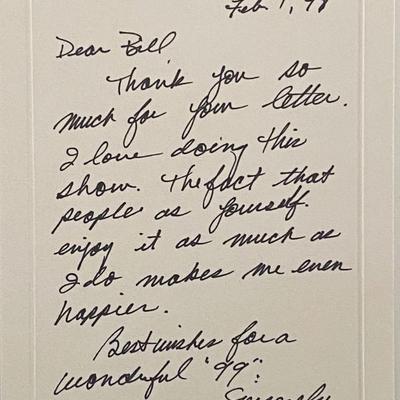 Feb 1, 98
Dear Bill
Thank you so
much for your letter.
I love doing this
show. The fact that
people as yourself.
enjoy it as much as
I do makes me even
happier.
Best wishes for a
wonderful "99":
Sincerely